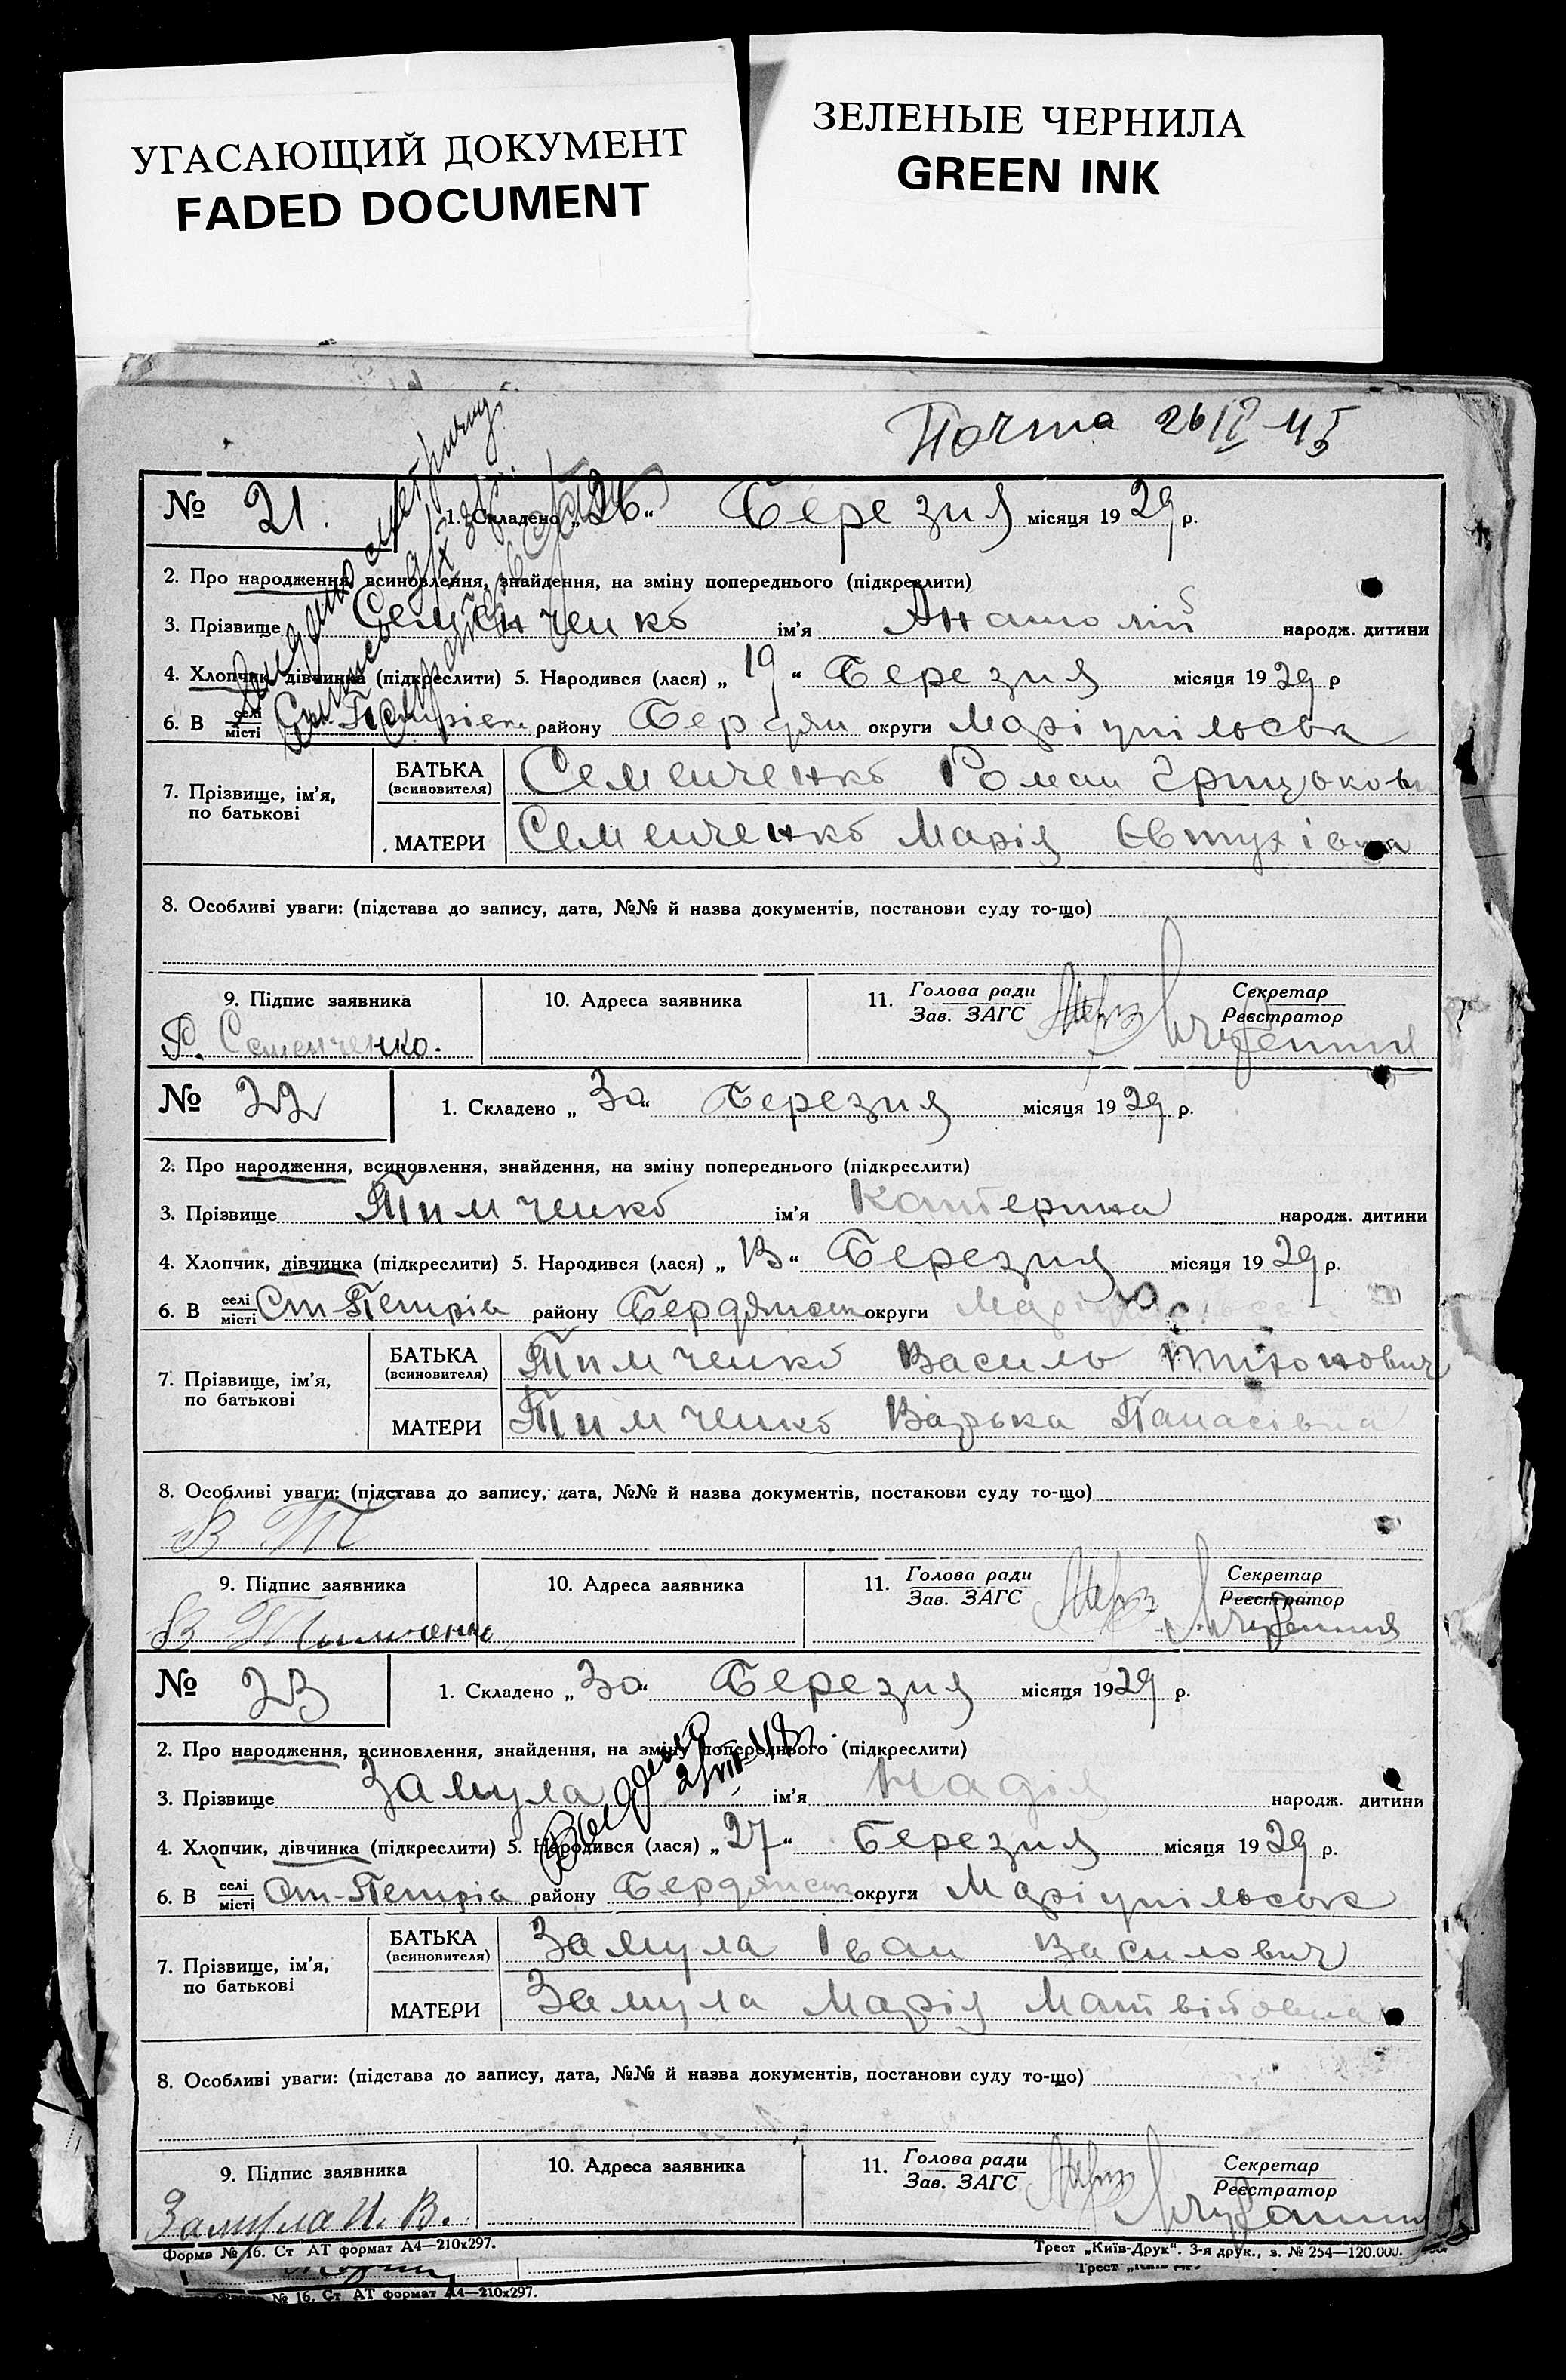 УГАСАЮЩИЙ ДОКУМЕНТ
FADED DOCUMENT
ЗЕЛЕНЫЕ ЧЕРНИЛА
GREEN INK
Почта 26/II-45
№ 21. 1. Складено „26“ Березня місяця 1929 р.
2. Про народження, всиновлення, знайдення, на зміну попереднього (підкреслити)
3. Прізвище Семенченко ім'я Анатолій народж. дитини
4. Хлопчик, дівчинка (підкреслити) 5. Народився (лася) „19“ Березня місяця 1929 р
6. В селі місті Ст-Петрівк району Бердян округи Маріупільськ
7. Прізвище, ім'я, по батькові
БАТЬКА (всиновителя) Семенченко Роман Грицькови
МАТЕРИ Семенченко Марія Євтухівна
8. Особливі уваги: (підстава до запису, дата, №№ й назва документів, постанови суду то-що)
9. Підпис заявника 10. Адреса заявника 11. Голова ради Зав. ЗАГС Секретар Реєстратор
Р. Семенченко.
№ 22 1. Складено „30“ Березня місяця 1929 р.
2. Про народження, всиновлення, знайдення, на зміну попереднього (підкреслити)
3. Прізвище Тимченко ім'я Катерина народж. дитини
4. Хлопчик, дівчинка (підкреслити) 5. Народився (лася) „13“ Березня місяця 1929 р.
6. В селі місті Ст-Петрів району Бердянськ округи
7. Прізвище, ім'я, по батькові
БАТЬКА (всиновителя) Тимченко Василь Тихонович
МАТЕРИ Тимченко Варька Панасівна
8. Особливі уваги: (підстава до запису, дата, №№ й назва документів, постанови суду то-що)
В Т
9. Підпис заявника 10. Адреса заявника 11. Голова ради Зав. ЗАГС Секретар Реєстратор
В Тимченко
№ 23 1. Складено „30“ Березня місяця 1929 р.
2. Про народження, всиновлення, знайдення, на зміну попереднього (підкреслити)
3. Прізвище Замула ім'я Надія народж. дитини
4. Хлопчик, дівчинка (підкреслити) 5. Народився (лася) „27“ Березня місяця 1929 р.
6. В селі місті Ст-Петрів району Бердянськ округи Маріупільськ
7. Прізвище, ім'я, по батькові
БАТЬКА (всиновителя) Замула Іван Василович
МАТЕРИ Замула Марія Матвійовна
8. Особливі уваги: (підстава до запису, дата, №№ й назва документів, постанови суду то-що)
9. Підпис заявника 10. Адреса заявника 11. Голова ради Зав. ЗАГС Секретар Реєстратор
Замула И. В.
Форма № 16. Ст АТ формат А4—210х297. Трест „Київ-Друк“. 3-я друк., з. № 254—120.000.
№ 16. Ст АТ формат А4—210х297.